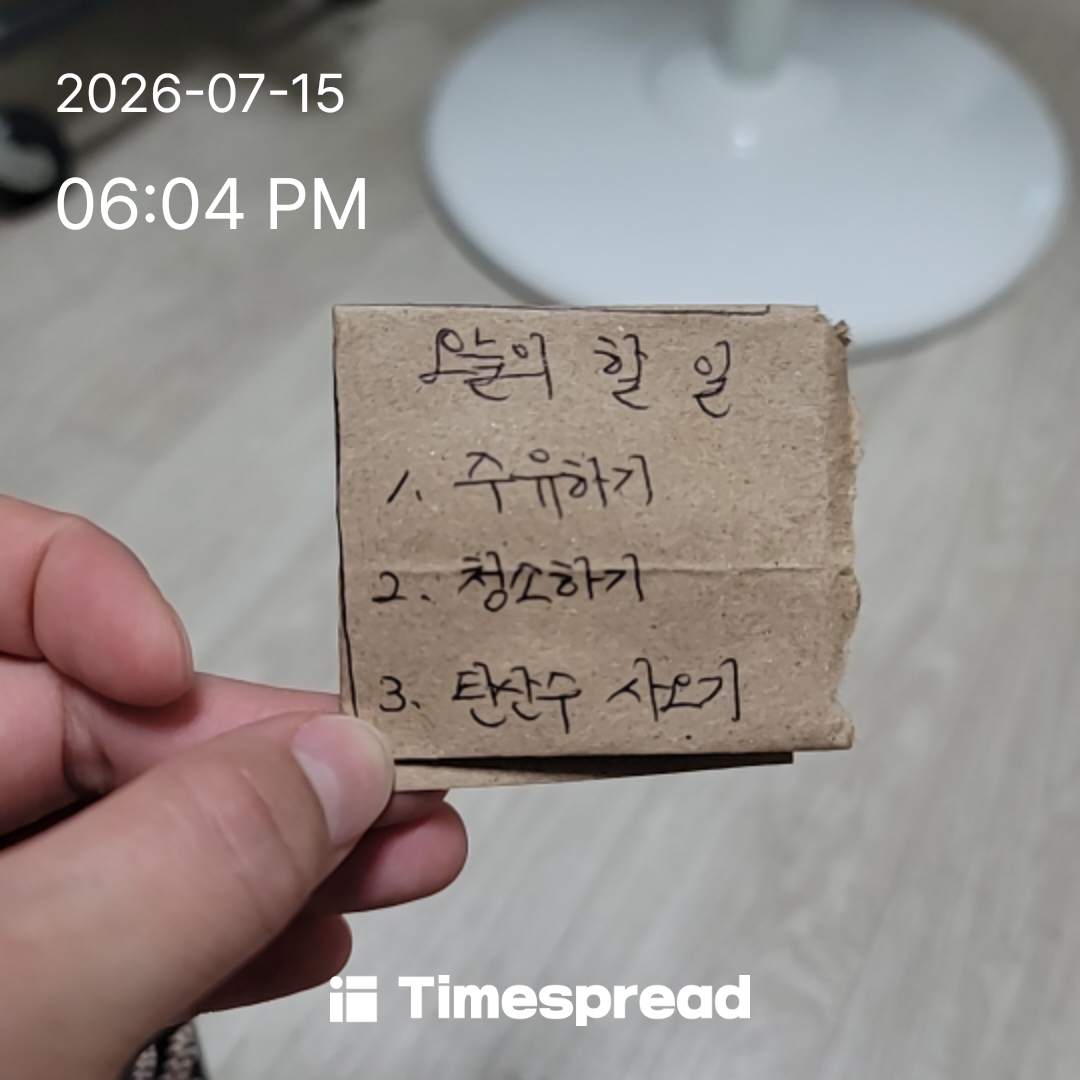 2026-07-15
06:04 PM
오늘의 할 일
1. 주유하기
2. 청소하기
3. 탄산수 사오기
Timespread